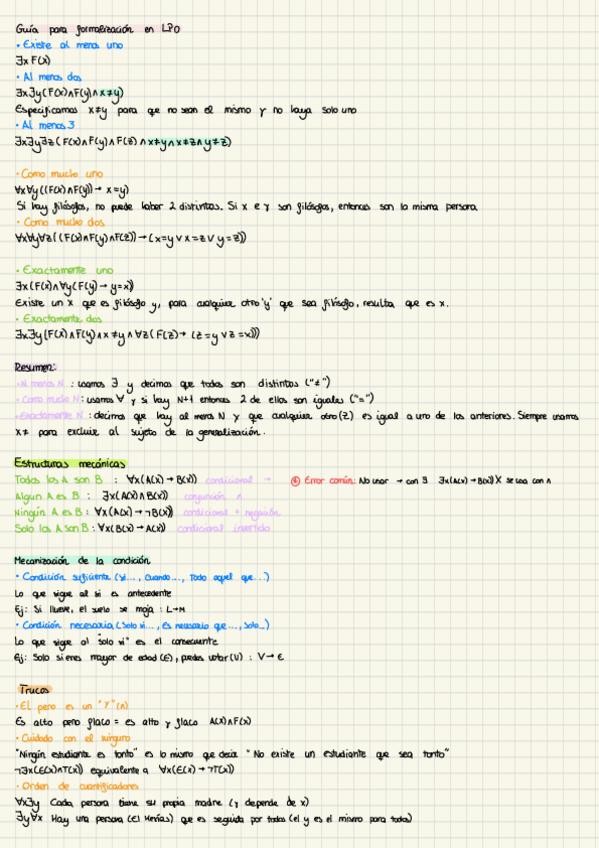 Guía para formalización en LPO
• Existe al menos uno
∃x F(x)
• Al menos dos
∃x∃y(F(x)∧F(y)∧x≠y)
Especificamos x≠y para que no sean el mismo y no haya solo uno
• Al menos 3
∃x∃y∃z(F(x)∧F(y)∧F(z)∧x≠y∧x≠z∧y≠z)
• Como mucho uno
∀x∀y((F(x)∧F(y))→ x=y)
Si hay filósofos, no puede haber 2 distintos. Si x e y son filósofos, entonces son la misma persona.
• Como mucho dos
∀x∀y∀z((F(x)∧F(y)∧F(z))→(x=y∨x=z∨y=z))
• Exactamente uno
∃x(F(x)∧∀y(F(y)→ y=x))
Existe un x que es filósofo y, para cualquier otro 'y' que sea filósofo, resulta que es x.
• Exactamente dos
∃x∃y(F(x)∧F(y)∧x≠y∧∀z(F(z)→(z=y∨z=x)))
Resumen:
• Al menos N : usamos ∃ y decimos que todos son distintos ("≠")
• Como mucho N: usamos ∀ y si hay N+1 entonces 2 de ellos son iguales ("=")
• Exactamente N: decimos que hay al menos N y que cualquier otro(z) es igual a uno de los anteriores. Siempre usamos
x≠ para excluir al sujeto de la generalización.
Estructuras mecánicas
Todos los A son B : ∀x(A(x)→B(x)) condicional → Error común: No usar → con ∃ ∃x(A(x)→B(x)) X se usa con ∧
Algún A es B : ∃x(A(x)∧B(x)) conjunción ∧
Ningún A es B : ∀x(A(x)→¬B(x)) condicional + negación
Solo los A son B : ∀x(B(x)→A(x)) condicional invertido
Mecanización de la condición
• Condición suficiente (Si..., Cuando..., Todo aquel que...)
Lo que sigue al si es antecedente
Ej: Si llueve, el suelo se moja : L→M
• Condición necesaria (Solo si..., Es necesario que..., Solo...)
Lo que sigue al "solo si" es el consecuente
Ej: Solo si eres mayor de edad(E), puedes votar(V) : V→E
Trucos
• El pero es un "Y"(∧)
Es alto pero flaco = es alto y flaco A(x)∧F(x)
• Cuidado con el ninguno
"Ningún estudiante es tonto" es lo mismo que decir "No existe un estudiante que sea tonto"
¬∃x(E(x)∧T(x)) equivalente a ∀x(E(x)→¬T(x))
• Orden de cuantificadores
∀x∃y Cada persona tiene su propia madre (y depende de x)
∃y∀x Hay una persona (El Mesías) que es seguida por todos (el y es el mismo para todos)